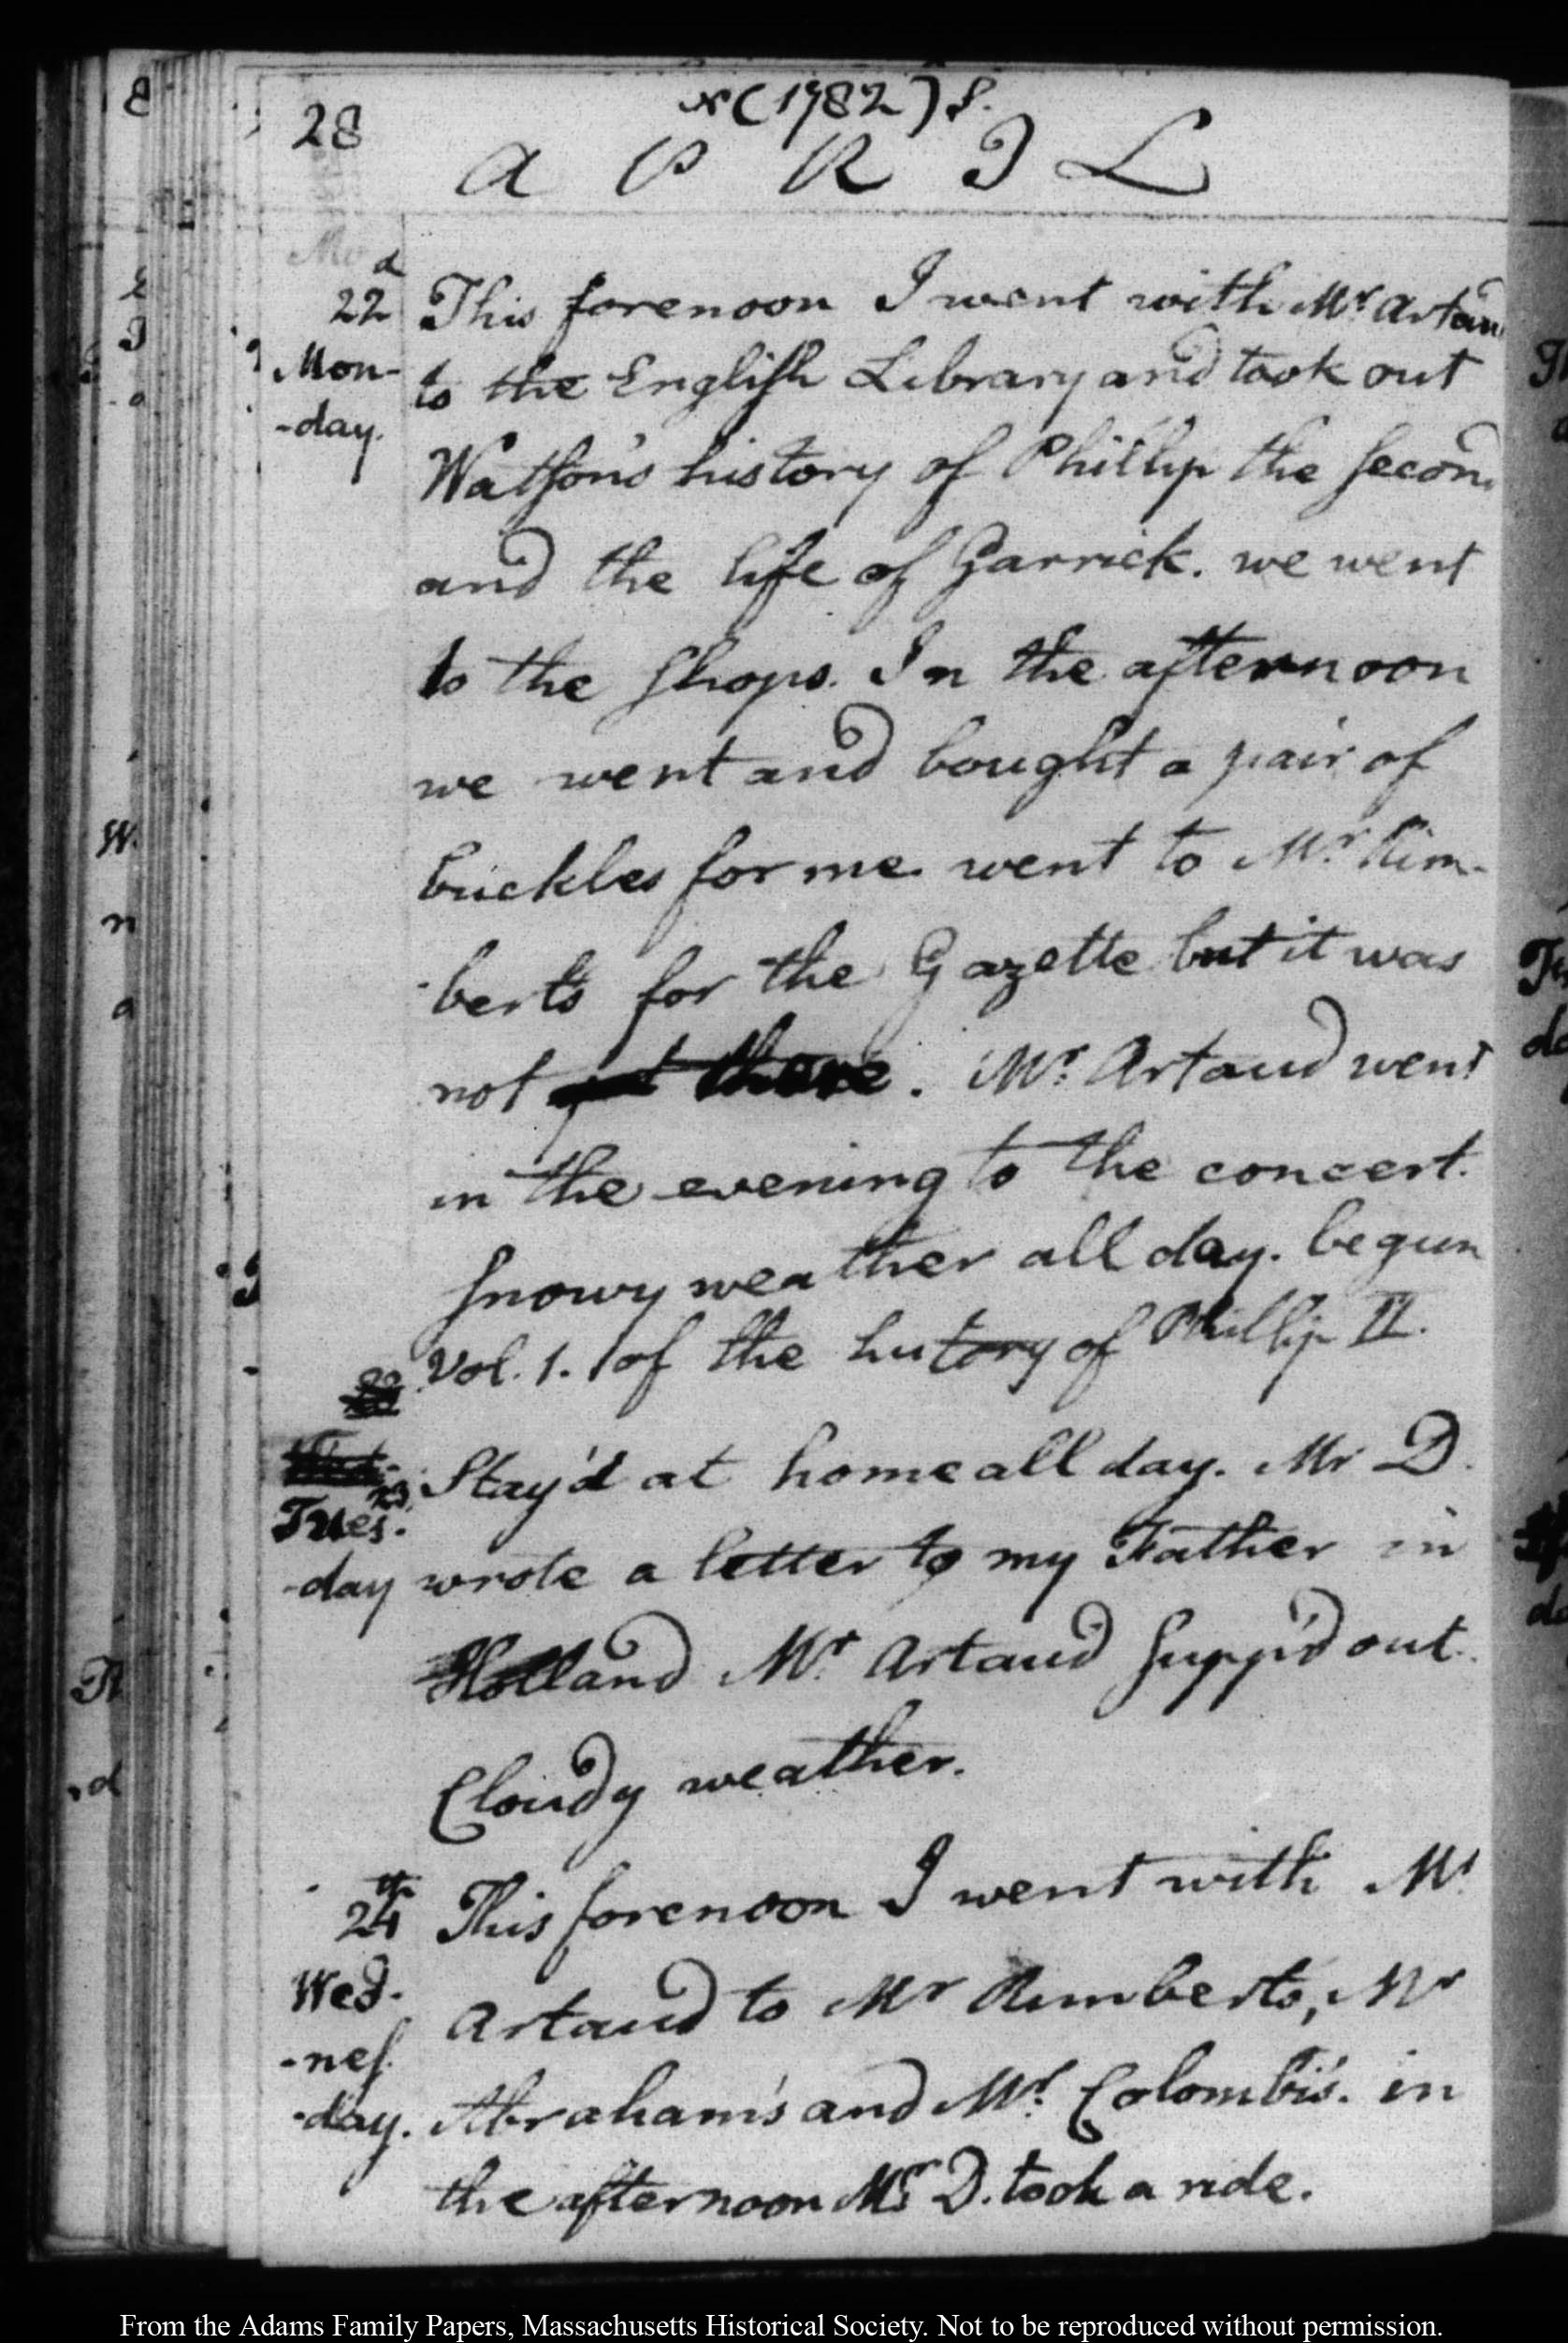 28
(1782)
A P R I L
22d This forenoon I went with Mr. Artaud
Mon- to the English Library and took out
-day. Watson's history of Phillip the second
and the life of Garrick. we went
to the shops. In the afternoon
we went and bought a pair of
buckles for me went to Mr. Rim-
-bert's for the Gazette but it was
not yet there. Mr. Artaud went
in the evening to the concert.
Snowy weather all day. begun
Vol. 1. of the history of Phillip II.
23 Stay'd at home all day. Mr D.
Tues.
-day wrote a letter to my Father in
Holland Mr. Artaud supp'd out.
Cloudy weather.
24th This forenoon I went with Mr
Wed- Artaud to Mr Rimberts, Mr
-nes-
-day. Abraham's and Mr. Colombi's. in
the afternoon Mr D. took a ride.
From the Adams Family Papers, Massachusetts Historical Society. Not to be reproduced without permission.